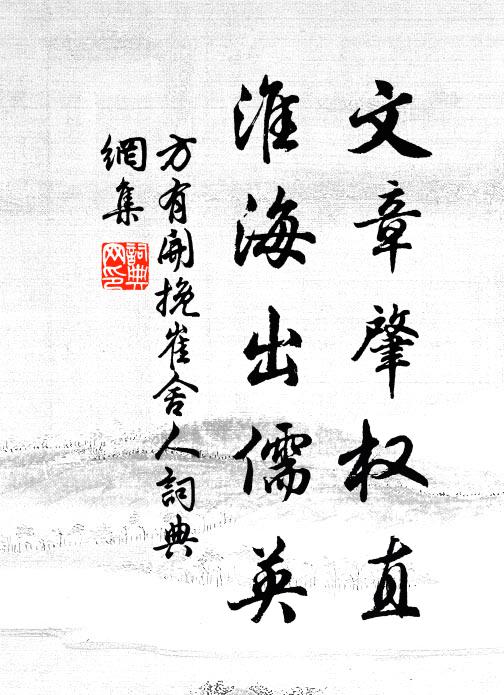 文章肇权直
淮海出儒英
方有開挽崔舍人詞典
網集
詞典
网印